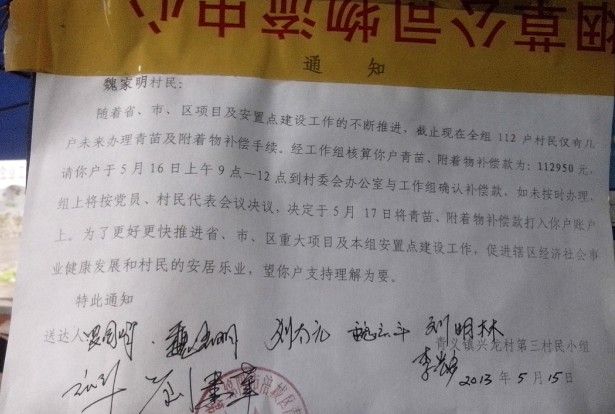 烟草公司物流中心
通 知
魏家明村民：
随着省、市、区项目及安置点建设工作的不断推进，截止现在全组 112 户村民仅有几
户未来办理青苗及附着物补偿手续。经工作组核算你户青苗、附着物补偿款为：112950 元，
请你户于 5 月 16 日上午 9 点—12 点到村委会办公室与工作组确认补偿款，如未按时办理，
组上将按党员、村民代表会议决议，决定于 5 月 17 日将青苗、附着物补偿款打入你户账户
上。为了更好更快推进省、市、区重大项目及本组安置点建设工作，促进辖区经济社会事
业健康发展和村民的安居乐业，望你户支持理解为要。
特此通知
送达人
刘明林
青义镇兴龙村第三村民小组
2013 年 5 月 15 日